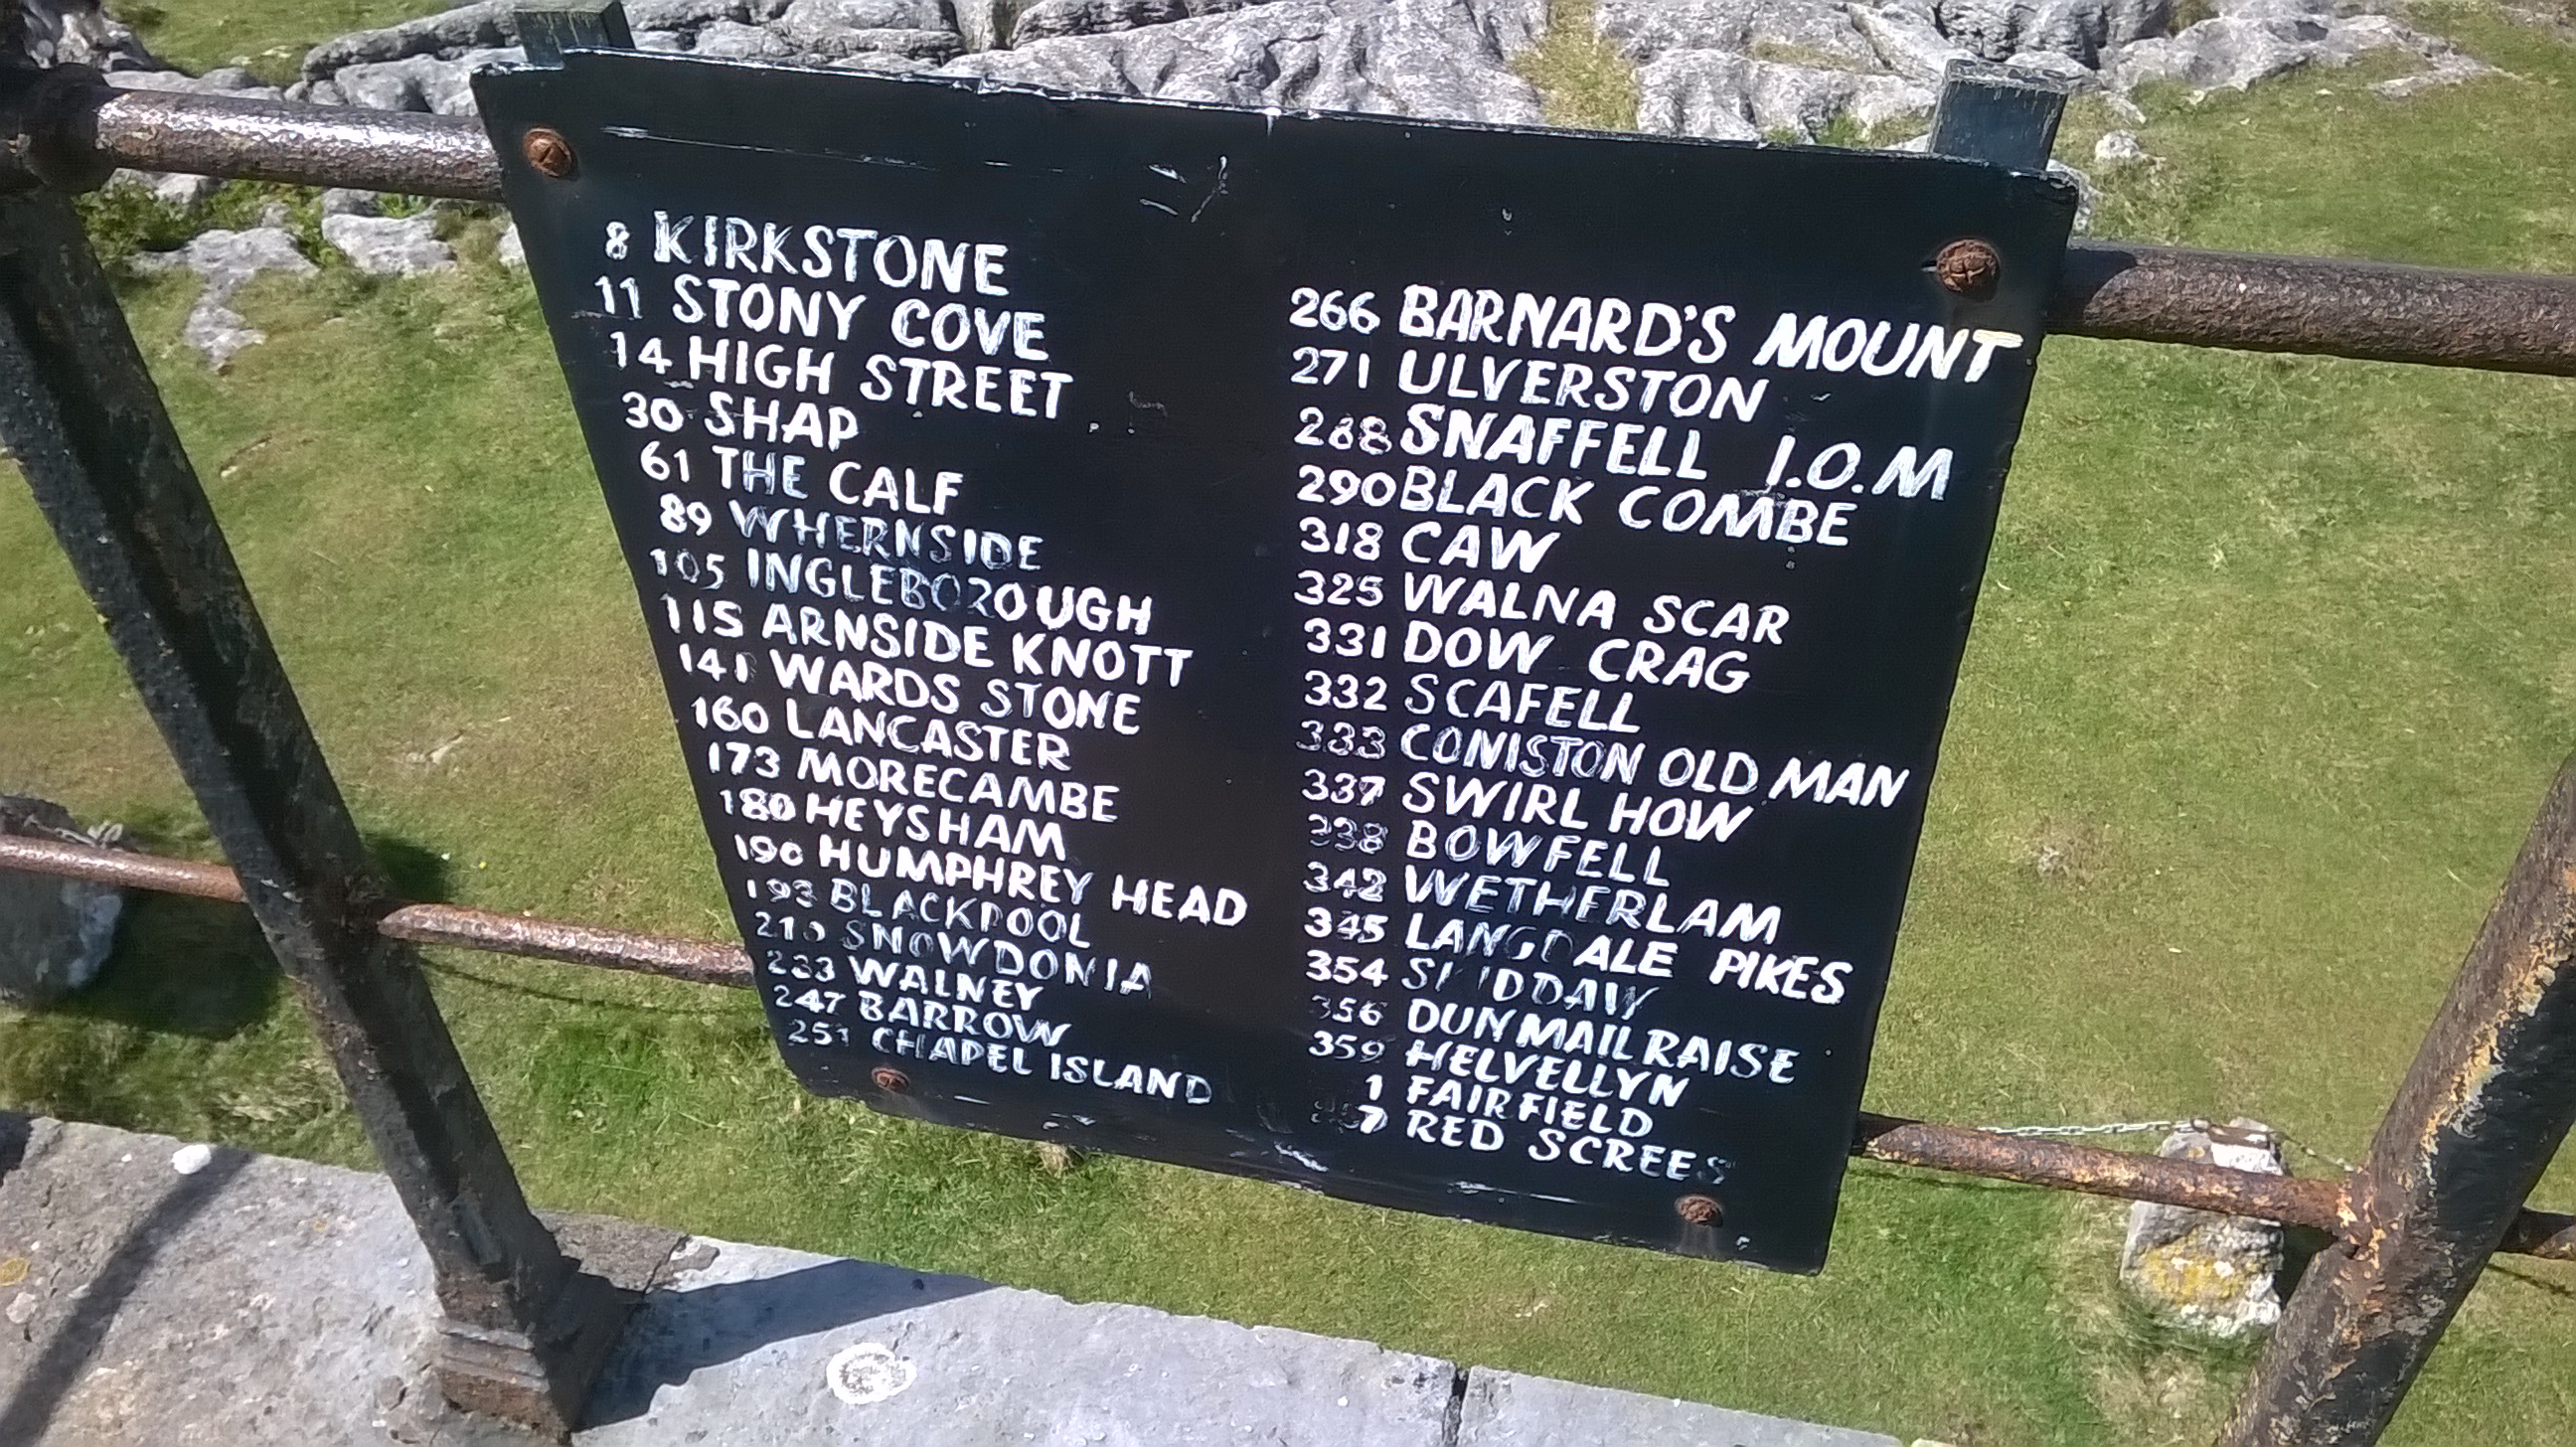 8 KIRKSTONE
11 STONY COVE
14 HIGH STREET
30 SHAP
61 THE CALF
89 WHERNSIDE
105 INGLEBOROUGH
115 ARNSIDE KNOTT
141 WARDS STONE
160 LANCASTER
173 MORECAMBE
180 HEYSHAM
190 HUMPHREY HEAD
193 BLACKPOOL
SNOWDONIA
233 WALNEY
247 BARROW
251 CHAPEL ISLAND
266 BARNARD'S MOUNT
271 ULVERSTON
288 SNAFFELL I.O.M
290 BLACK COMBE
318 CAW
325 WALNA SCAR
331 DOW CRAG
332 SCAFELL
333 CONISTON OLD MAN
337 SWIRL HOW
338 BOWFELL
342 WETHERLAM
345 LANGDALE PIKES
354
356 DUNMAIL RAISE
359 HELVELLYN
1 FAIRFIELD
7 RED SCREES